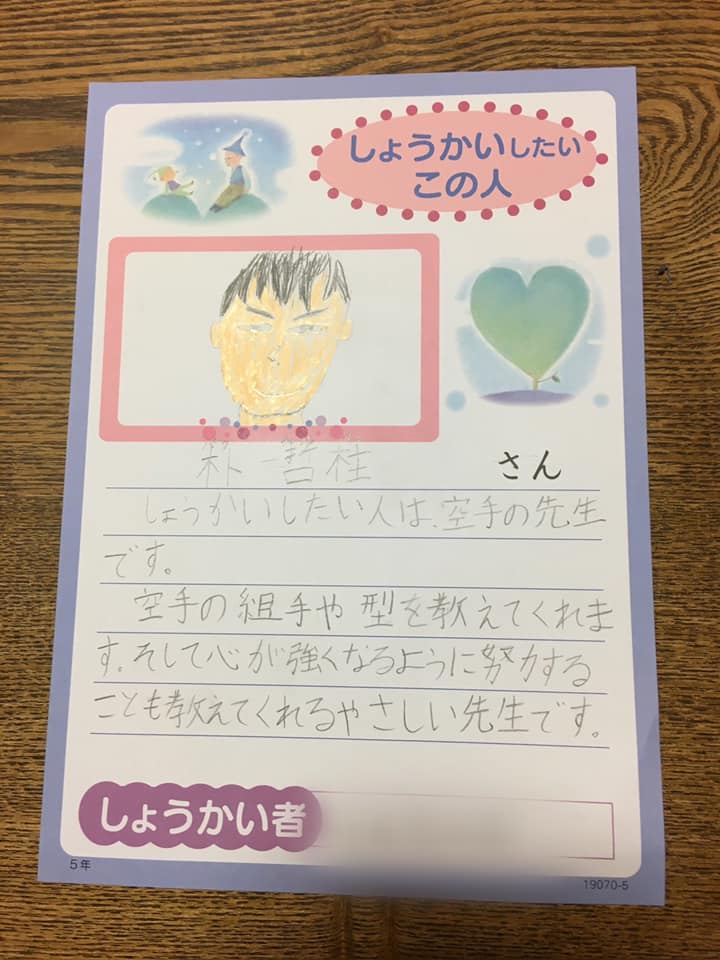 しょうかいしたい
この人
さん
しょうかいしたい人は、空手の先生
です。
空手の組手や型を教えてくれま
す。そして心が強くなるように努力する
ことも教えてくれるやさしい先生です。
しょうかい者
5年
19070-5